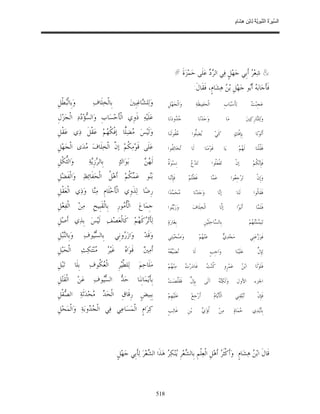 السِّيرَةُ النَّبَوِيَّةُ لِابْنِ هِشَامٍ
شِعْرُ أَبِي جَهْلٍ فِي الرَّدِّ عَلَى حَمْزَةَ #
فَأَجَابَهُ أَبُو جَهْلِ بْنُ هِشَامٍ، فَقَالَ:
عَجِبْتُ لِأَسْبَابِ الْحَفِيظَةِ وَالْجَهْلِ
وَلِلشَّاغِبِينَ بِالْخِلَافِ وَبِالْبُطْلِ
وَلِلتَّارِكِينَ مَا وَجَدْنَا جُدُودَنَا
عَلَيْهِ ذَوِي الْأَحْسَابِ وَالسُّؤْدُدِ الْجَزْلِ
أَتَوْنَا بِإِفْكٍ كَيْ يُضِلُّوا عُقُولَنَا
وَلَيْسَ مُضِلًّا إفْكُهُمْ عَقْلَ ذِي عَقْلِ
فَقُلْنَا لَهُمْ يَا قَوْمَنَا لَا تُخَالِفُوا
عَلَى قَوْمِكُمْ إنَّ الْخِلَافَ مَدَى الْجَهْلِ
فَإِنَّكُمْ إنْ تَفْعَلُوا تَدْعُ نِسْوَةٌ
لَهُنَّ بَوَاكٍ بِالرَّزِيَّةِ وَالثُّكْلِ
وَإِنْ تَرْجِعُوا عَمَّا فَعَلْتُمْ فَإِنَّنَا
بَنُو عَمِّكُمْ أَهْلُ الْحَفَائِظِ وَالْفَضْلِ
فَقَالُوا لَنَا إنَّا وَجَدْنَا مُحَمَّدًا
رِضًا لِذَوِي الْأَحْلَامِ مِنَّا وَذِي الْعَقْلِ
فَلَمَّا أَبَوْا إلَّا الْخِلَافَ وَزَيَّنُوا
جِمَاعَ الْأُمُورِ بِالْقَبِيحِ مِنْ الْفِعْلِ
تَيَمَّمْتُهُمْ بِالسَّاحِلَيْنِ بِغَارَةٍ
لِأَتْرُكَهُمْ كَالْعَصْفِ لَيْسَ بِذِي أَصْلِ
فَوَرَّعَنِي مَجْدِيٌّ عَنْهُمْ وَصُحْبَتِي
وَقَدْ وَازَرُونِي بِالسُّيُوفِ وَبِالنَّبْلِ
لِإِلٍّ عَلَيْنَا وَاجِبٍ لَا نُضَيِّعُهُ
أَمِينٌ قُوَاهُ غَيْرُ مُنْتَكِثِ الْحَبْلِ
فَلَوْلَا ابْنُ عَمْرٍو كُنْتُ غَادَرْتُ مِنْهُمْ
مَلَاحِمَ لِلطَّيْرِ الْعُكُوفِ بِلَا تَبْلِ
الجزء الأول وَلَكِنَّهُ آلَى بِإِلٍّ فَقَلَّصَتْ
بِأَيْمَانِنَا حَدُّ السُّيُوفِ عَنْ الْقَتْلِ
فَإِنْ تُبْقِنِي الْأَيَّامُ أَرْجِعْ عَلَيْهِمْ
بِبِيضٍ رِقَاقِ الْحَدِّ مُحْدَثَةِ الصَّقْلِ
بِأَيْدِي حُمَاةٍ مِنْ لُؤَيِّ بْنِ غَالِبٍ
كِرَامِ الْمَسَاعِي فِي الْجُدُوبَةِ وَالْمَحْلِ
قَالَ ابْنُ هِشَامٍ: وَأَكْثَرُ أَهْلِ الْعِلْمِ بِالشِّعْرِ يُنْكِرُ هَذَا الشِّعْرَ لِأَبِي جَهْلٍ
518